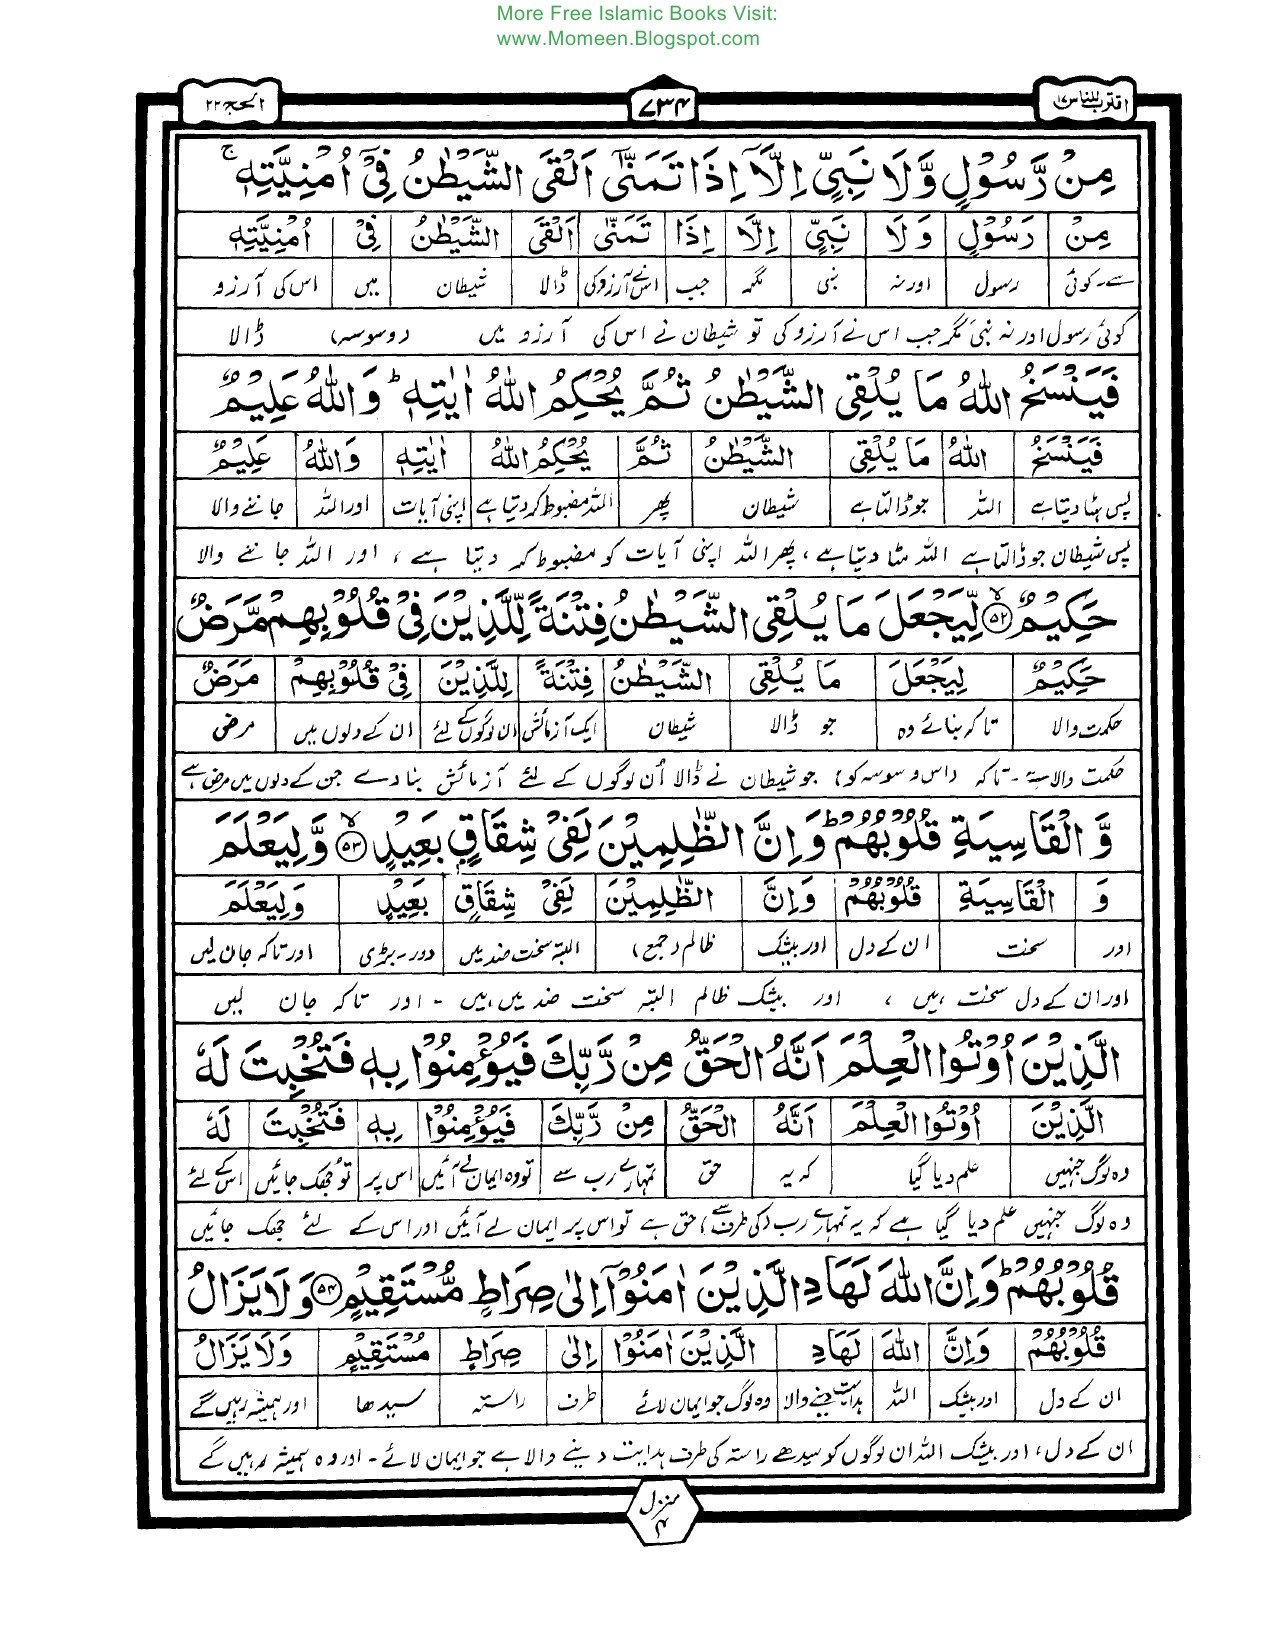 More Free Islamic Books Visit:
www.Momeen.Blogspot.com
اقترب للناس ۱۷
۷۳۴
الحج ۲۲
مِنْ رَّسُوْلٍ وَّلَا نَبِيٍّ اِلَّاۤ اِذَا تَمَنّٰۤى اَلْقَى الشَّيْطٰنُ فِيْۤ اُمْنِيَّتِهٖ ۚ
مِنْ رَسُوْلٍ وَلَا نَبِيٍّ اِلَّا اِذَا تَمَنّٰى اَلْقَى الشَّيْطٰنُ فِيْ اُمْنِيَّتِهٖ
سے۔کوئی رسول اور نہ نبی مگر جب اس نے آرزو کی ڈالا شیطان میں اس کی آرزو
کوئی رسول اور نہ نبی مگر جب اس نے آرزو کی تو شیطان نے اس کی آرزو میں (وسوسہ) ڈالا
فَيَنْسَخُ اللّٰهُ مَا يُلْقِى الشَّيْطٰنُ ثُمَّ يُحْكِمُ اللّٰهُ اٰيٰتِهٖ ؕ وَاللّٰهُ عَلِيْمٌ
فَيَنْسَخُ اللّٰهُ مَا يُلْقِى الشَّيْطٰنُ ثُمَّ يُحْكِمُ اللّٰهُ اٰيٰتِهٖ وَاللّٰهُ عَلِيْمٌ
پس ہٹا دیتا ہے اللہ جو ڈالتا ہے شیطان پھر اللہ مضبوط کر دیتا ہے اپنی آیات اور اللہ جاننے والا
پس شیطان جو ڈالتا ہے اللہ مٹا دیتا ہے، پھر اللہ اپنی آیات کو مضبوط کر دیتا ہے، اور اللہ جاننے والا
حَكِيْمٌ ۙ﴿۵۲﴾ لِّيَجْعَلَ مَا يُلْقِى الشَّيْطٰنُ فِتْنَةً لِّلَّذِيْنَ فِيْ قُلُوْبِهِمْ مَّرَضٌ
حَكِيْمٌ لِيَجْعَلَ مَا يُلْقِى الشَّيْطٰنُ فِتْنَةً لِلَّذِيْنَ فِيْ قُلُوْبِهِمْ مَرَضٌ
حکمت والا تاکہ بنائے وہ جو ڈالا شیطان ایک آزمائش ان لوگوں کے لئے ان کے دلوں میں مرض
حکمت والا ہے۔ تاکہ (اس وسوسہ کو) جو شیطان نے ڈالا اُن لوگوں کے لئے آزمائش بنا دے جن کے دلوں میں مرض ہے
وَّ الْقَاسِيَةِ قُلُوْبُهُمْ ؕ وَاِنَّ الظّٰلِمِيْنَ لَفِيْ شِقَاقٍۭ بَعِيْدٍ ۙ﴿۵۳﴾ وَّلِيَعْلَمَ
وَ الْقَاسِيَةِ قُلُوْبُهُمْ وَاِنَّ الظّٰلِمِيْنَ لَفِيْ شِقَاقٍ بَعِيْدٍ وَلِيَعْلَمَ
اور سخت ان کے دل اور بیشک ظالم (جمع) البتہ سخت ضد میں دور۔بڑی اور تاکہ جان لیں
اور ان کے دل سخت ہیں، اور بیشک ظالم البتہ سخت ضد میں ہیں۔ اور تاکہ جان لیں
الَّذِيْنَ اُوْتُوا الْعِلْمَ اَنَّهُ الْحَقُّ مِنْ رَّبِّكَ فَيُؤْمِنُوْا بِهٖ فَتُخْبِتَ لَهٗ
الَّذِيْنَ اُوْتُوا الْعِلْمَ اَنَّهُ الْحَقُّ مِنْ رَّبِّكَ فَيُؤْمِنُوْا بِهٖ فَتُخْبِتَ لَهٗ
وہ لوگ جنہیں علم دیا گیا کہ یہ حق تمہارے رب سے تو وہ ایمان لے آئیں اس پر تو جھک جائیں اس کے لئے
وہ لوگ جنہیں علم دیا گیا ہے کہ یہ تمہارے رب (کی طرف سے) حق ہے تو اس پر ایمان لے آئیں اور اس کے لئے جھک جائیں
قُلُوْبُهُمْ ؕ وَاِنَّ اللّٰهَ لَهَادِ الَّذِيْنَ اٰمَنُوْۤا اِلٰى صِرَاطٍ مُّسْتَقِيْمٍ ﴿۵۴﴾ وَلَا يَزَالُ
قُلُوْبُهُمْ وَاِنَّ اللّٰهَ لَهَادِ الَّذِيْنَ اٰمَنُوْا اِلٰى صِرَاطٍ مُسْتَقِيْمٍ وَلَا يَزَالُ
ان کے دل اور بیشک اللہ ہدایت دینے والا وہ لوگ جو ایمان لائے طرف راستہ سیدھا اور ہمیشہ رہیں گے
ان کے دل، اور بیشک اللہ ان لوگوں کو سیدھے راستہ کی طرف ہدایت دینے والا ہے جو ایمان لائے۔ اور وہ ہمیشہ رہیں گے
منزل
۴